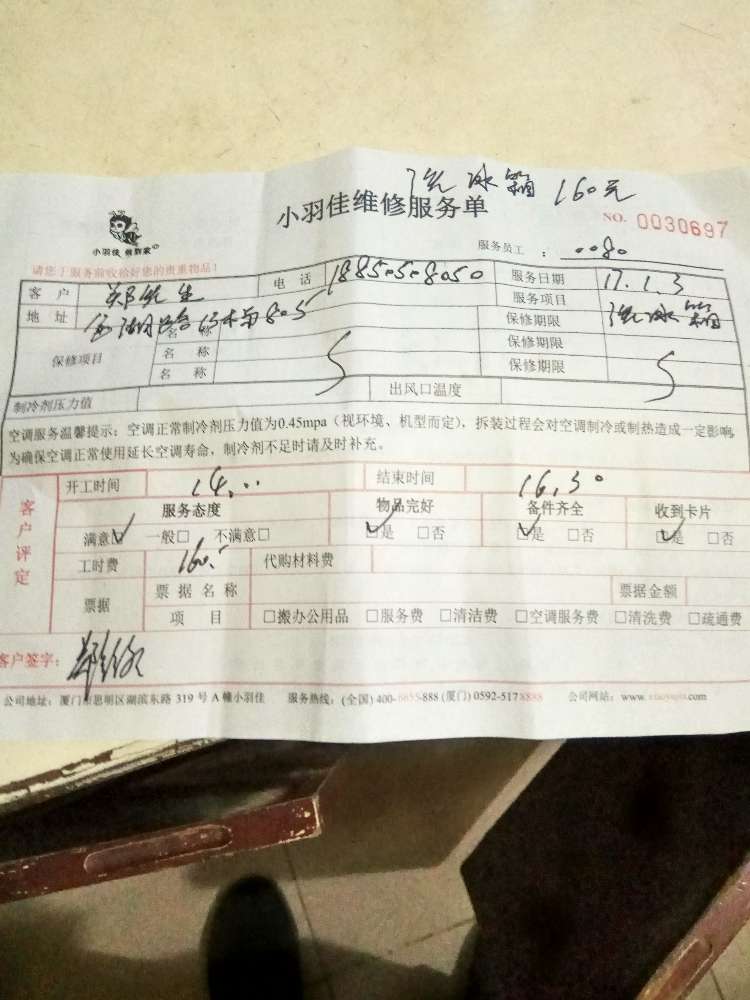 洗冰箱 160元
小羽佳维修服务单
NO. 0030697
小羽佳 做到家
服务员工 : 0080
请您于服务前收拾好您的贵重物品!
客户 郑先生 电话 服务日期 17.1.3
服务项目
地址 805 保修期限 洗冰箱
保修项目 名称 保修期限
名称 保修期限
名称
制冷剂压力值 出风口温度
空调服务温馨提示:空调正常制冷剂压力值为0.45mpa(视环境、机型而定),拆装过程会对空调制冷或制热造成一定影响,
为确保空调正常使用延长空调寿命,制冷剂不足时请及时补充。
客户评定
开工时间 14:00 结束时间 16:30
服务态度 物品完好 备件齐全 收到卡片
满意☑ 一般□ 不满意□ ☑是 □否 ☑是 □否 ☑是 □否
工时费 160.- 代购材料费
票据 票据名称 票据金额
项目 □搬办公用品 □服务费 □清洁费 □空调服务费 □清洗费 □疏通费
客户签字:
公司地址:厦门市思明区湖滨东路 319 号 A 幢小羽佳 服务热线:(全国)400-6655-888 (厦门) 0592-5178888 公司网站:www.xiaoyujia.com